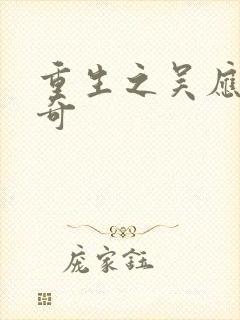 重生之吴应
奇
庞家钰